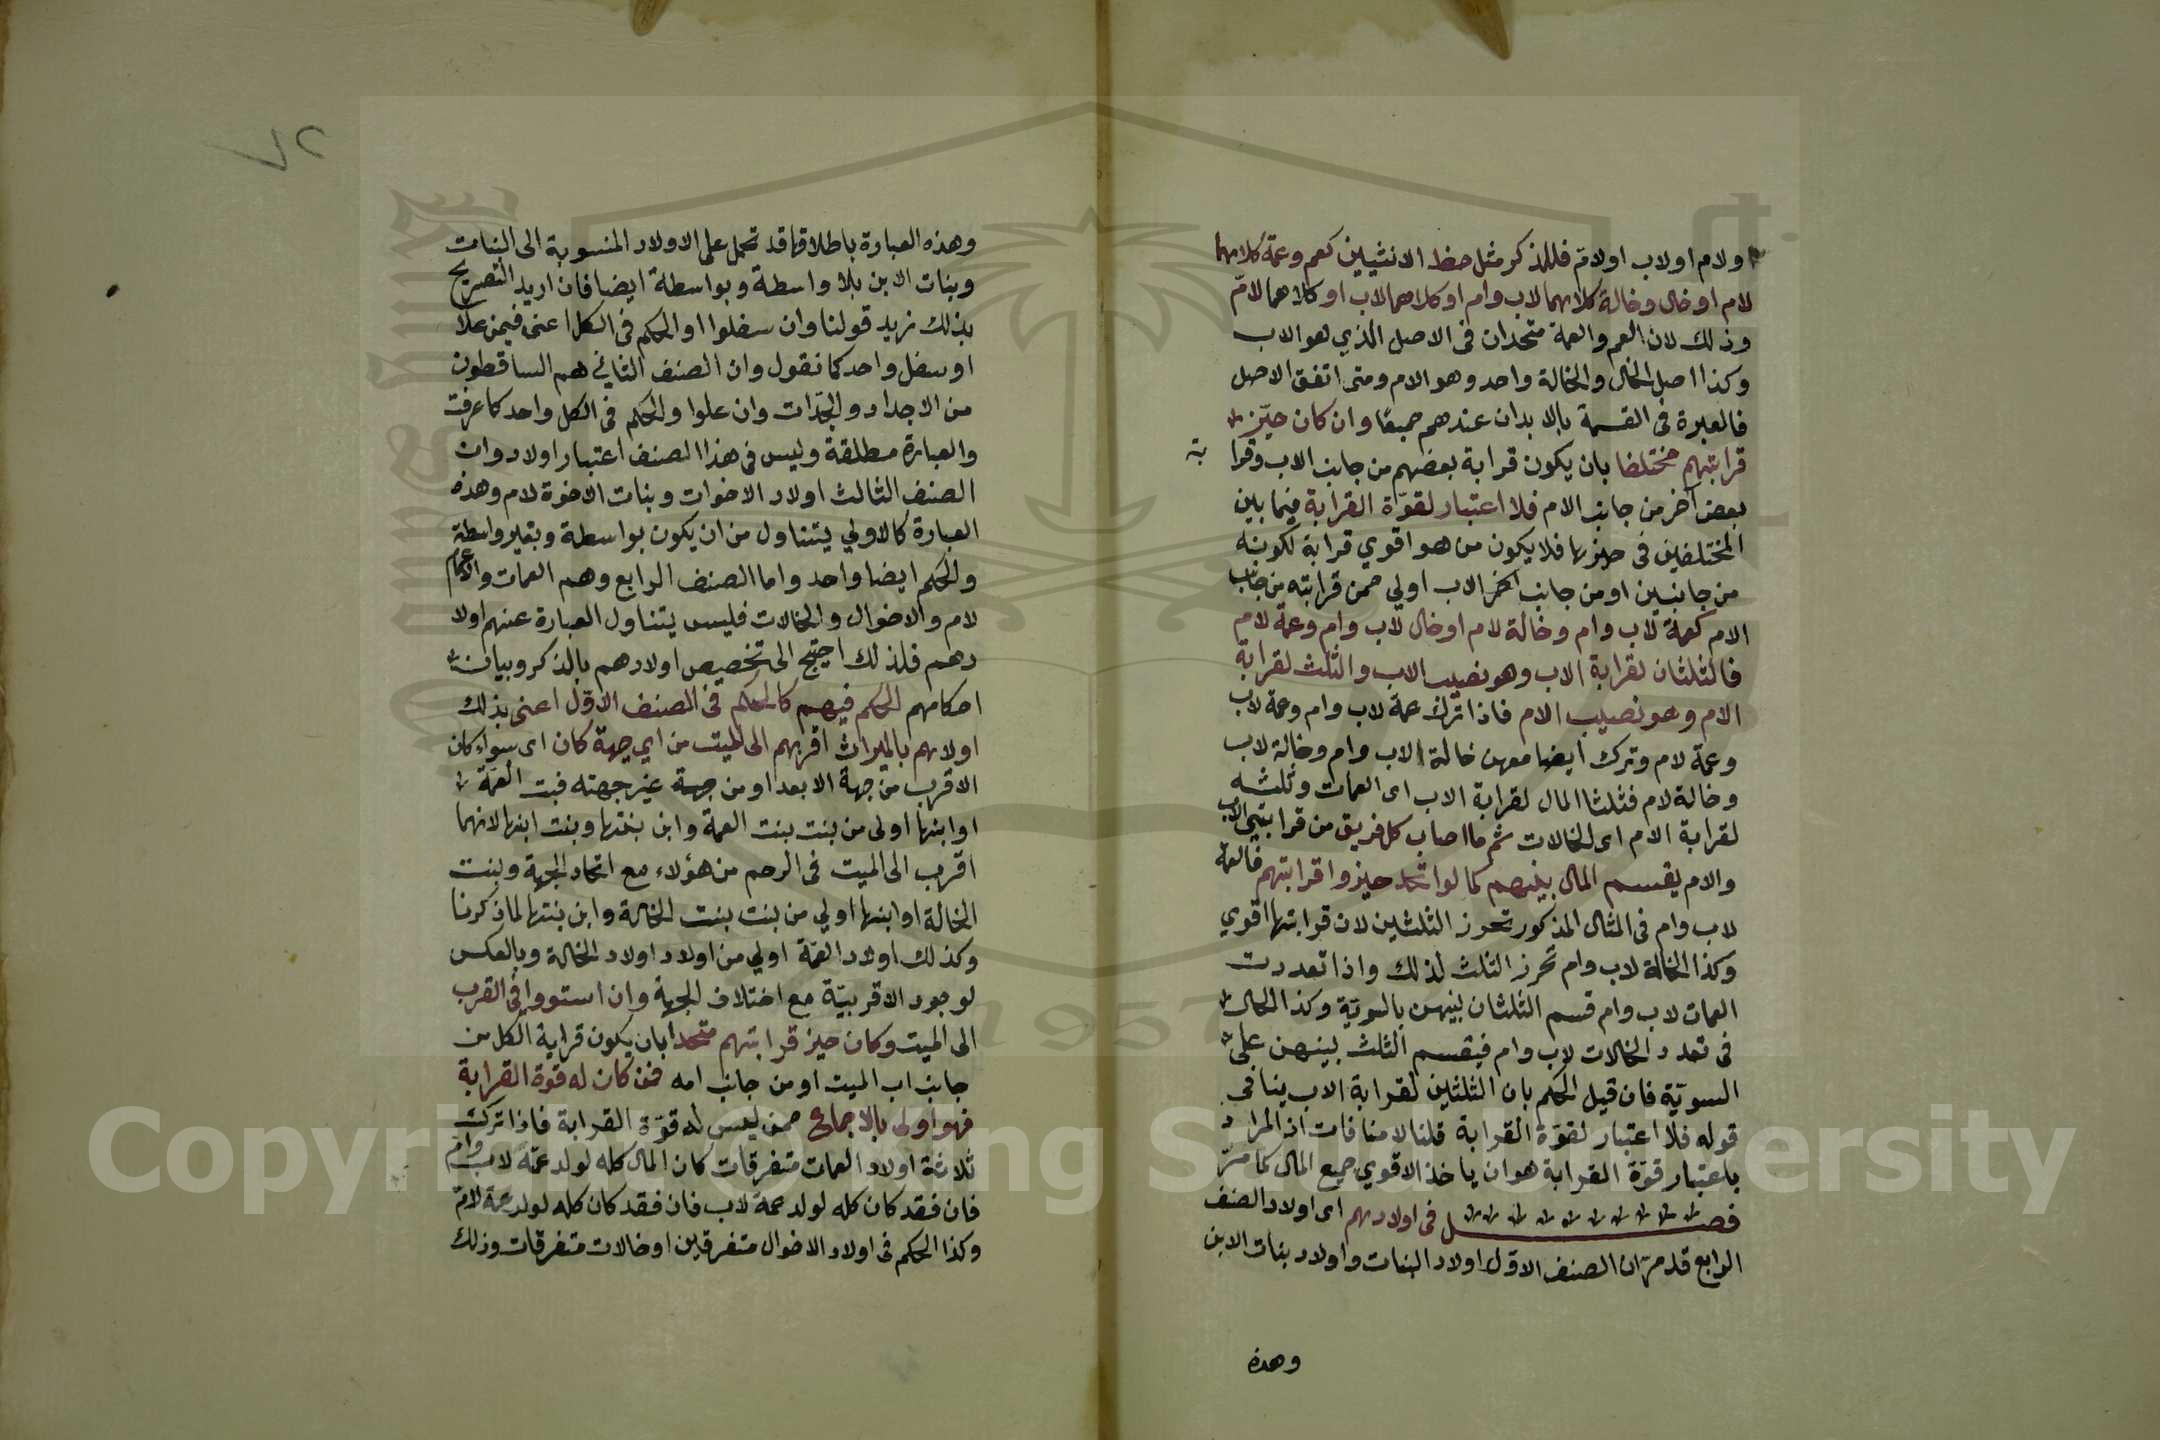 او لام اولاب اولام فللذكر مثل حظ الانثيين كعم وعمة كلاهما
لام او خال وخالة كلاهما لاب وام او كلاهما لاب او كلاهما لامّ
وذلك لان العم والعمة متحدان فى الاصل الذي هو الاب
وكذا اصل الخال والخالة واحد وهو الام ومتى اتفق الاصل
فالعبرة فى القسمة بالابدان عندهم جميعًا وان كان حيّز
قرابتهم مختلفا بان يكون قرابة بعضهم من جانب الاب وقرا بة
بعض آخر من جانب الام فلا اعتبار لقوّة القرابة فيما بين
المختلفين فى حيزها فلا يكون من هو اقوي قرابة لكونه
من جانبين او من جانب الاب اولي ممن قرابته من جانب
الام كعمة لاب وام وخالة لام او خال لاب وام وعمة لام
فالثلثان لقرابة الاب وهو نصيب الاب والثلث لقرابة
الام وهو نصيب الام فاذا ترك عمة لاب وام وعمة لاب
وعمة لام وترك ايضا معهن خالة لاب وام وخالة لاب
وخالة لام فثلثا المال لقرابة الاب اى العمات وثلثه
لقرابة الام اى الخالات ثم ما اصاب كل فريق من قرابتي الاب
والام يقسم المال بينهم كما لو اتحد حيز قرابتهم فالعمة
لاب وام فى المثال المذكور تحرز الثلثين لان قرابتها اقوي
وكذا الخالة لاب وام تحرز الثلث لذلك واذا تعددت
العمات لاب وام قسم الثلثان بينهن بالسويّة وكذا الحال
فى تعدد الخالات لاب وام فيقسم الثلث بينهن على
السويّة فان قيل الحكم بان الثلثين لقرابة الاب ينافي
قوله فلا اعتبار لقوّة القرابة قلنا لا منافات اذ المراد
باعتبار قوّة القرابة هو ان ياخذ الاقوي جميع المال كما مرّ
فصل فى اولادهم اى اولاد الصنف
الرابع قد مرّ ان الصنف الاول اولاد البنات واولاد بنات الابن
وهذه
٧٢
وهذه العبارة باطلاقها قد تحمل على الاولاد المنسوبة الى البنات
وبنات الابن بلا واسطة وبواسطة ايضا فان اريد التصريح
بذلك نزيد قولنا وان سفلوا او الحكم فى الكل اعنى فيمن علا
او سفل واحد كما نقول وان الصنف الثاني هم الساقطون
من الاجداد والجدّات وان علوا والحكم فى الكل واحد كما عرفت
والعبارة مطلقة وليس فى هذا الصنف اعتبار اولاد وان
الصنف الثالث اولاد الاخوات وبنات الاخوة لام وهذه
العبارة كالاولي يتناول من ان يكون بواسطة وبغير واسطة
والحكم ايضا واحد واما الصنف الرابع وهم العمات والاعمام
لام والاخوال والخالات فليس يتناول العبارة عنهم اولا
دهم فلذلك احتيج الى تخصيص اولادهم بالذكر وبيان
احكامهم الحكم فيهم كالحكم فى الصنف الاوّل اعنى بذلك
اولاهم بالميراث اقربهم الى الميت من اي جهة كان اى سواء كان
الاقرب من جهة الابعد او من جهة غير جهته فبنت العمّة
او ابنها اولى من بنت بنت العمة وابن بنتها وبنت ابنها لانهما
اقرب الى الميت فى الرحم من هؤلاء مع اتحاد الجهة وبنت
الخالة او ابنها اولي من بنت بنت الخالة وابن بنتها لما ذكرنا
وكذلك اولاد العمّة اولي من اولاد اولاد الخالة وبالعكس
لوجود الاقربيّة مع اختلاف الجهة وان استووا فى القرب
الى الميت وكان حيز قرابتهم متحدا بان يكون قرابة الكل من
جانب اب الميت او من جانب امه فمن كان له قوة القرابة
فهو اولى بالاجماع ممن ليس له قوّة القرابة فاذا ترك
ثلاثة اولاد العمات متفرقات كان المال كله لولد عمّة لاب وام
فان فقد كان كله لولد عمة لاب فان فقد كان كله لولد عمة لامّ
وكذا الحكم فى اولاد الاخوال متفرقين او خالات متفرقات وذلك
Copyright © King Saud University
1957